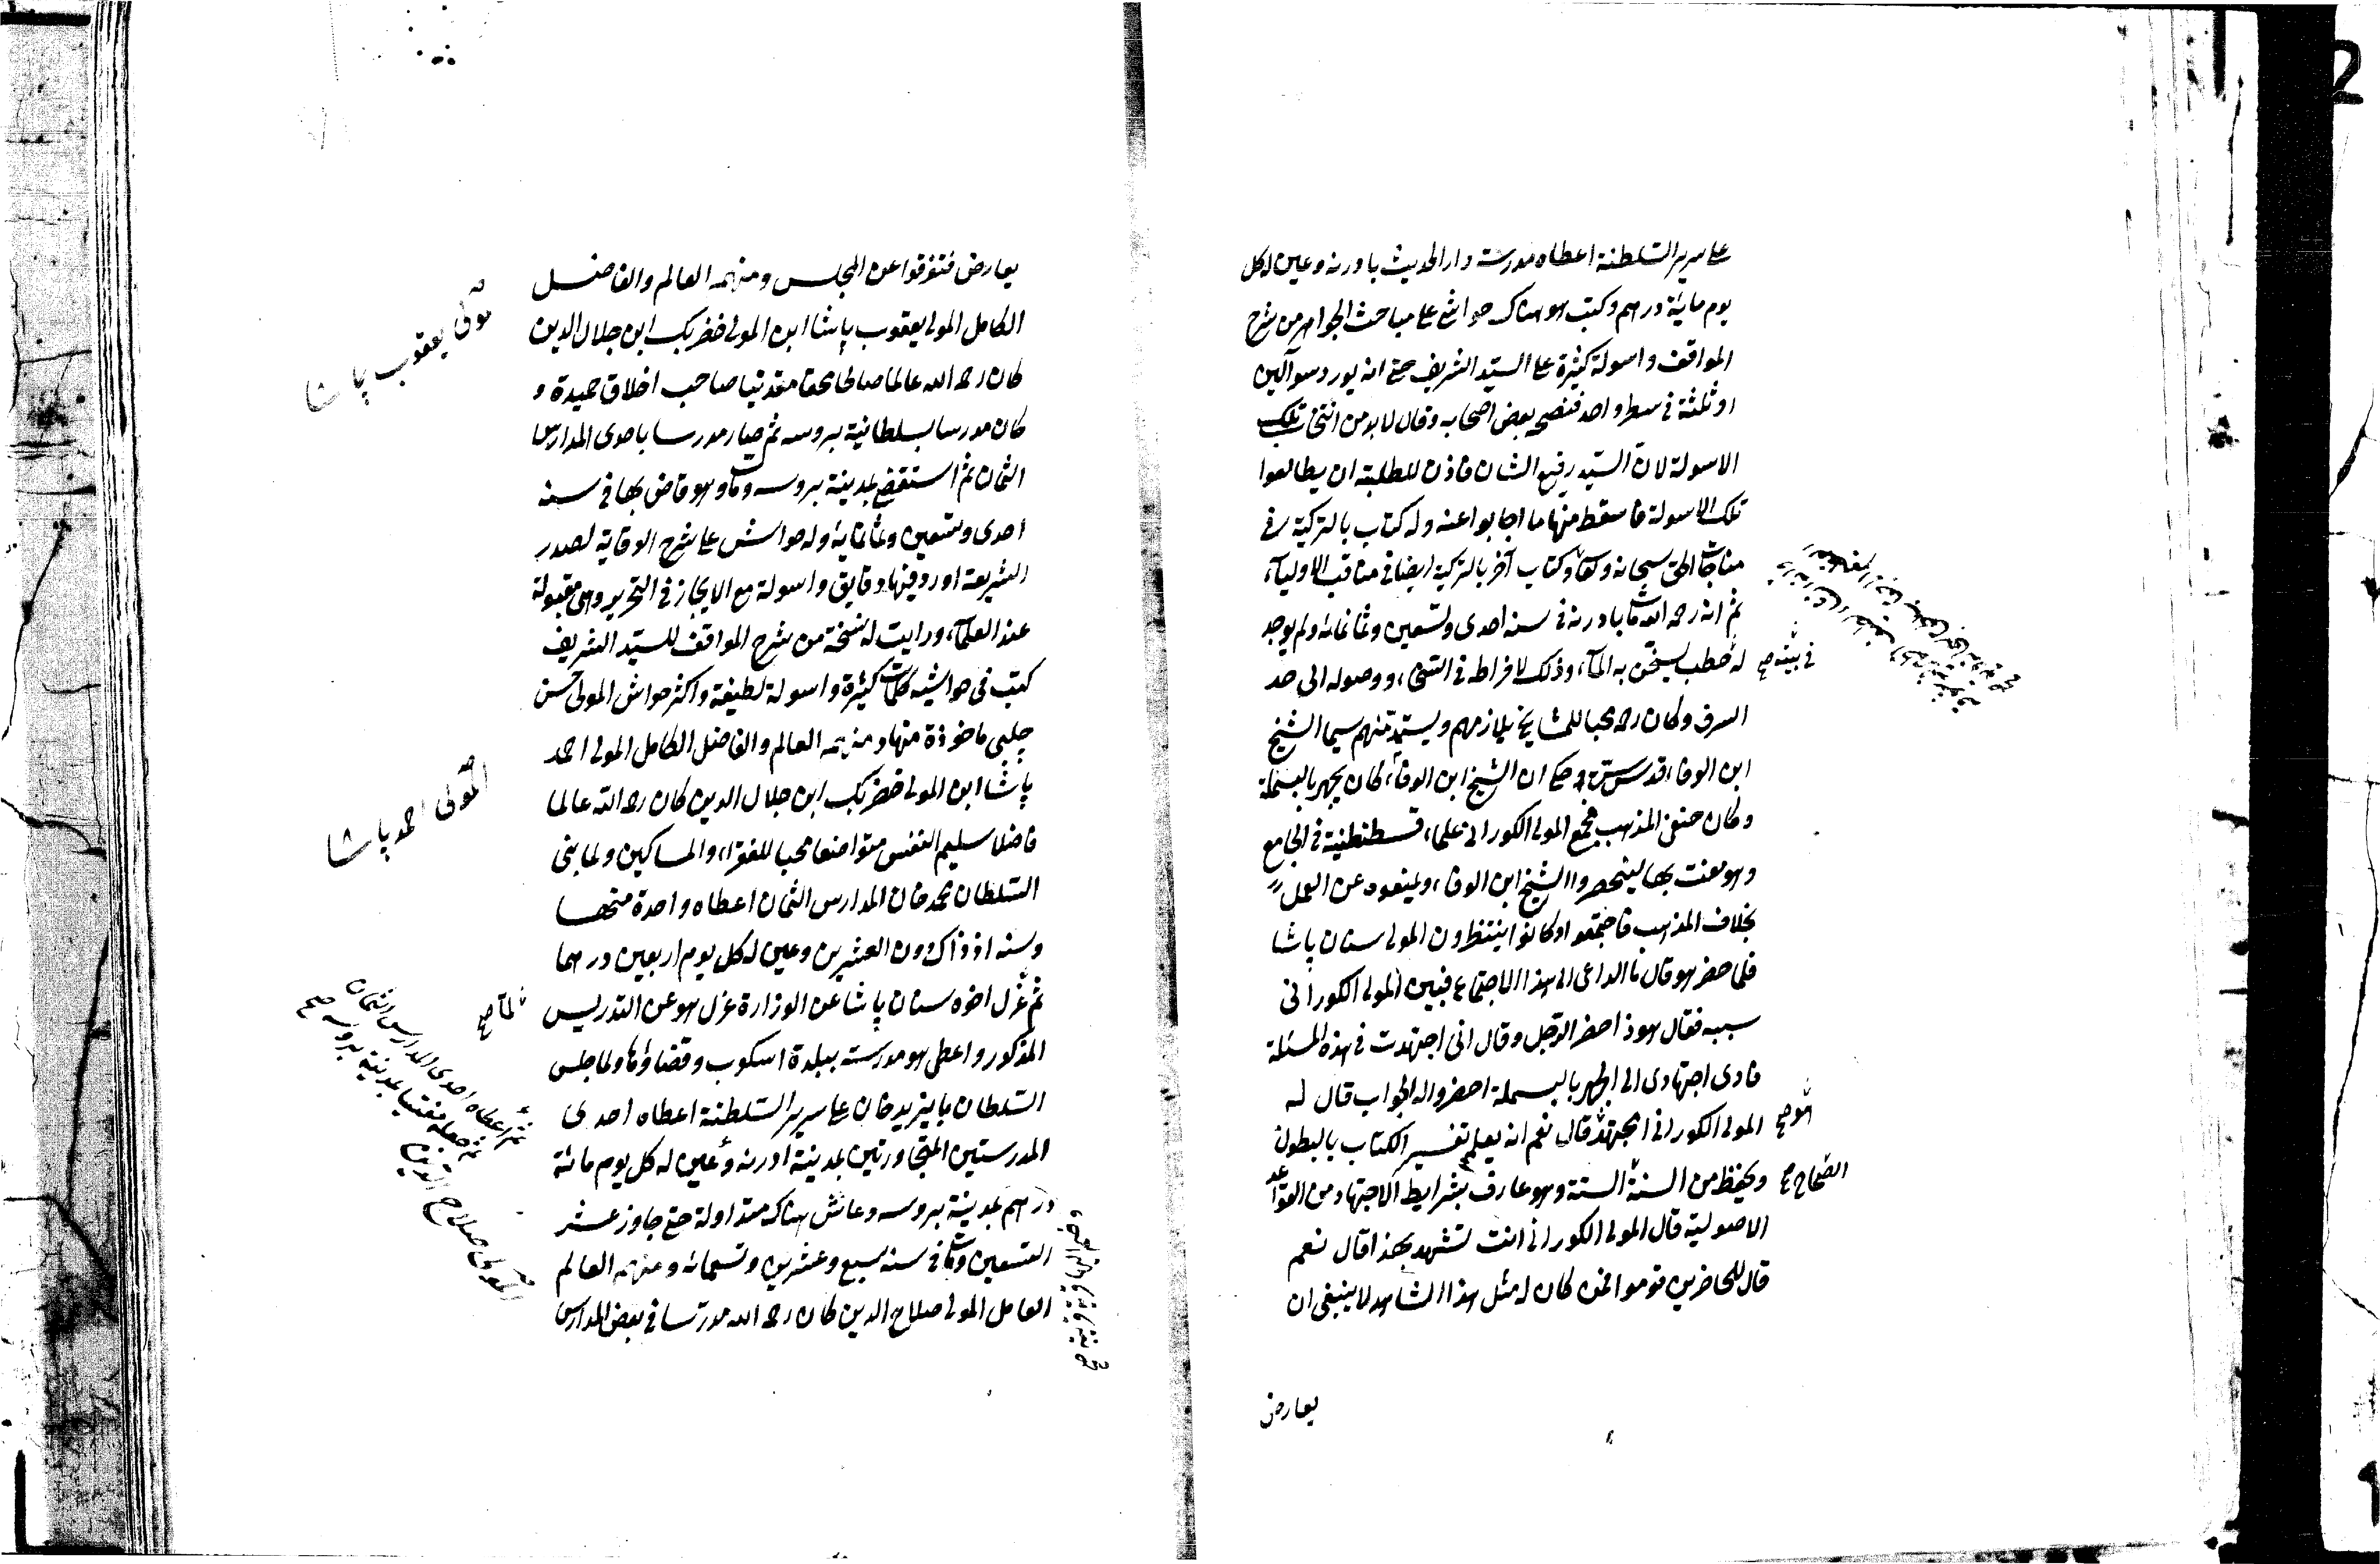 على سرير السلطنة اعطاه مدرسة دار الحديث بادرنه وعين له كل
يوم ماية درهم وكتب هو هناك حواشي على مباحث الجواهر من شرح
المواقف واسولة كثيرة على السيد الشريف حتى انه يورد سوآلين
او ثلثة في سطر واحد فنصحه بعض اصحابه وقال لا بد من انتخاب تلك
الاسولة لان السيد رفيع الشان فاذن للطلبة ان يطالعوا
تلك الاسولة فاسقط منها ما اجابوا عنه وله كتاب بالتركية في
مناجات الحق سبحانه وتعالى وكتاب آخر بالتركية ايضا في مناقب الاوليآء
ثم انه رحمه الله مات بادرنه في سنه احدى وتسعين وثمانمائه ولم يوجد
له حطب يسخن به المآء وذلك لافراطه في السخاء ووصوله الى حد
في بيته صح
السرف وكان رحمه محبا للمشايخ يلازمهم ويستمد منهم سيما الشيخ
ابن الوفاء قدس سره حكى ان الشيخ ابن الوفاء كان يجهر بالبسملة
وكان حنفى المذهب فجمع المولى الكورانى علماء قسطنطنية في الجامع
وهو مفت بها ليحضروا الشيخ ابن الوفاء ويمنعوه عن العمل
بخلاف المذهب فاجتمعوا وكانوا ينتظرون المولى سنان پاشا
فلما حضر هو قال ما الداعى الى هذا الاجتماع فبين المولى الكورانى
سببه فقال هو اذا حضر الرجل وقال انى اجتهدت في هذه المسئلة
فادى اجتهادى الى الجهر بالبسملة احضروا له الجواب قال له
المولى الكورانى امجتهد قال نعم انه يعلم تفسير الكتاب بالبطون
أهو صح
ويحفظ من السنة الستة وهو عارف بشرايط الاجتهاد من القواعد
الصحاح صح
الاصولية قال المولى الكورانى انت تشهد بهذا قال نعم
قال للحاضرين قوموا فمن كان له مثل هذا الشاهد لا ينبغى ان
يعارض
يعارض فتفرقوا عن المجلس ومنهم العالم والفاضل
الكامل المولى يعقوب پاشا ابن المولى خضر بك ابن جلال الدين
مولى يعقوب پاشا
كان رحمه الله عالما صالحا محققا متدينا صاحب اخلاق حميدة و
كان مدرسا بسلطانية بروسه ثم صار مدرسا باحدى المدارس
الثمان ثم استقضى بمدينة بروسه ومات وهو قاض بها في سنه
احدى وتسعين وثمانماية وله حواش على شرح الوقاية لصدر
الشريعة اورد فيها دقايق واسولة مع الايجاز في التحرير وهى مقبولة
عند العلمآء ورايت له نسخة من شرح المواقف للسيد الشريف
كتب في حواشيه كلمات كثيرة واسولة لطيفة واكثر حواش المولى حسن
چلبى ماخوذة منها ومنهم العالم والفاضل الكامل المولى احمد
پاشا ابن المولى خضر بك ابن جلال الدين كان رحمه الله عالما
المولى احمد پاشا
فاضلا سليم النفس متواضعا محبا للفقراء والمساكين ولما بنى
السلطان محمد خان المدارس الثمان اعطاه واحدة منها
وسنه اذ ذاك دون العشرين وعين له كل يوم اربعين درهما
ثم عزل اخوه سنان پاشا عن الوزارة عزل هو عن التدريس
لما صح
المذكور واعطى هو مدرسة ببلدة اسكوب وقضاؤها ولما جلس
السلطان بايزيد خان على سرير السلطنة اعطاه احدى
المدرستين المتجاورتين بمدينة ادرنه وعين له كل يوم مائة
ثم اعطاه احدى المدارس الثمان
ثم جعله مفتيا بمدينة بروسه صح
درهم بمدينة بروسه وعاش هناك متداولة حتى جاوز عشر
التسعين ومات في سنه سبع وعشرين وتسعمائه ومنهم العالم
العامل المولى صلاح الدين كان رحمه الله مدرسا في بعض المدارس
المولى صلاح الدين